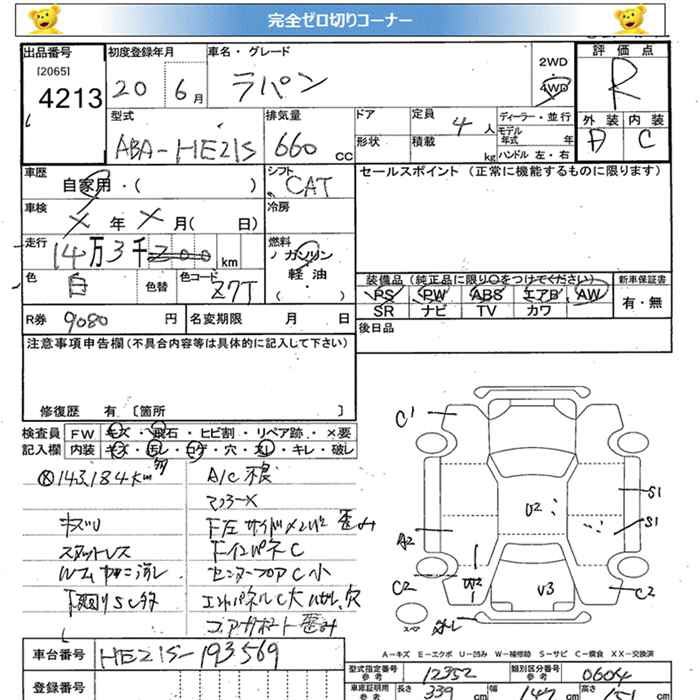 完全ゼロ切りコーナー
出品番号
[2065]
4213
初度登録年月
20 6月
車名・グレード
ラパン
2WD
4WD
評価点
R
外装 内装
D C
型式
ABA-HE21S
排気量
660 cc
ドア
形状
定員 4人
積載 kg
ディーラー・並行
モデル年式 年
ハンドル 左・右
車歴
自家用・( )
シフト
CAT
セールスポイント (正常に機能するものに限ります)
車検
X年X月( 日)
冷房
走行
14万3千200km
燃料
ガソリン
軽油
( )
色
白
色替
色コード
Z7T
装備品 (純正品に限り○をつけてください)
新車保証書
PS PW ABS エアB AW
有・無
SR ナビ TV カワ
R券 9080円
名変期限 月 日
後日品
注意事項申告欄(不具合内容等は具体的に記入して下さい)
修復歴 有 [箇所 ]
検査員 FW キズ・飛石・ヒビ割・リペア跡・×要
記入欄 内装 キズ・汚レ・コゲ・穴・スレ・キレ・破レ
143,184km
A/C不良
マフラーX
キズU
スタットレス
下回りSC多
下インパネC
センターフロアC小
エンドパネルC大
コアサポート歪み
C1
A2
C2
U2
S1
S1
W2
V3
C2
スペア
A-キズ E-エクボ U-凹み W-補修跡 S-サビ C-腐食 XX-交換済
車台番号 HE21S-193569
登録番号
型式指定番号 参考 12352
類別区分番号 参考 0604
車庫証明用 参考 長さ 339 cm 幅 147 cm 高さ 151 cm